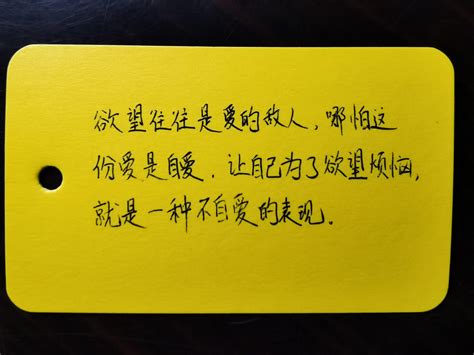 欲望往往是爱的敌人，哪怕这
份爱是自爱．让自己为了欲望烦恼，
就是一种不自爱的表现．